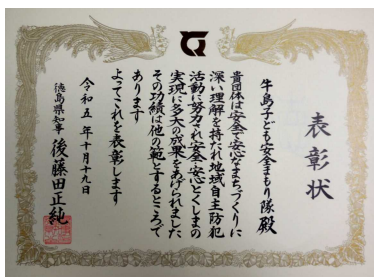 表彰状
牛島子ども安全まもり隊殿
貴団体は安全で安心なまちづくりに
深い理解を持たれ地域自主防犯
活動に努力され安全・安心とくしまの
実現に多大の成果をあげられました
その功績は他の範とするところで
あります
よってこれを表彰します
令和五年十月十九日
徳島県知事 後藤田正純